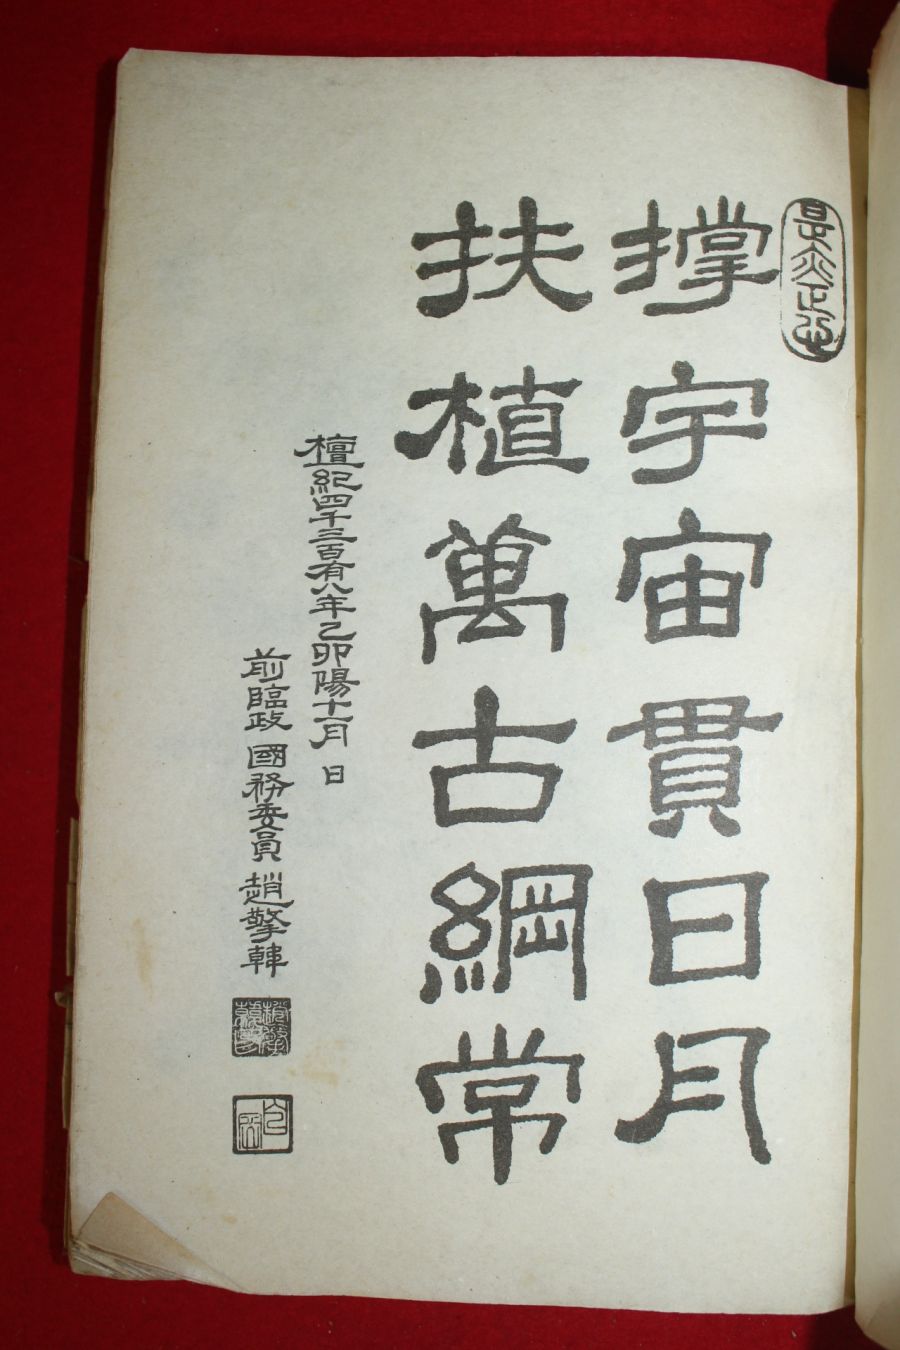 撐宇宙貫日月
扶植萬古綱常
檀紀四千三百有八年乙卯陽十一月 日
前臨政 國務委員 趙擎韓